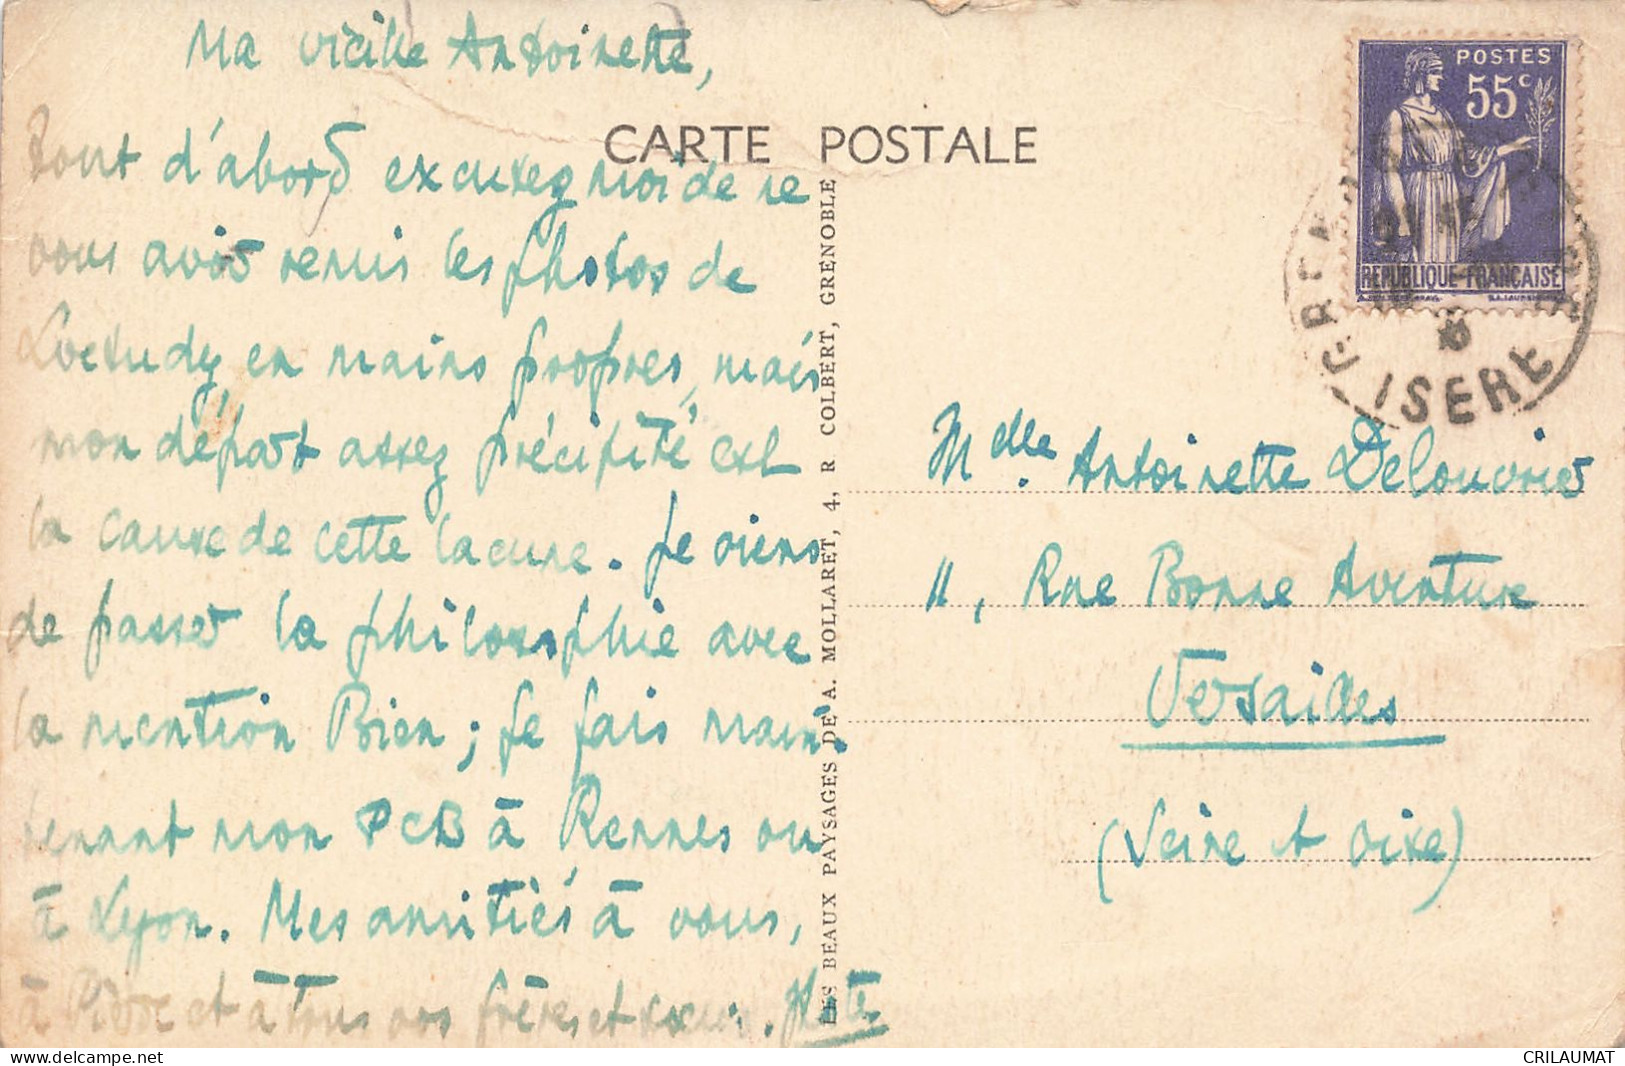 Ma vieille Antoinette,
Tout d'abord excusez moi de ne
vous avoir remis les photos de
Loctudy en mains propres, mais
mon départ assez précipité est
la cause de cette lacune. Je viens
de passer la philosophie avec
la mention Bien ; je fais main-
tenant mon PCB à Rennes ou
à Lyon. Mes amitiés à vous,
à Pierre et à tous vos frères et sœurs.
CARTE POSTALE
LES BEAUX PAYSAGES DE A. MOLLARET, 4, R COLBERT, GRENOBLE
POSTES
55c
REPUBLIQUE FRANÇAISE
GRENOBLE
ISERE
Mdlle. Antoinette Delouvrier
11, Rue Bonne Aventure
Versailles
(Seine et Oise)
CRILAUMAT